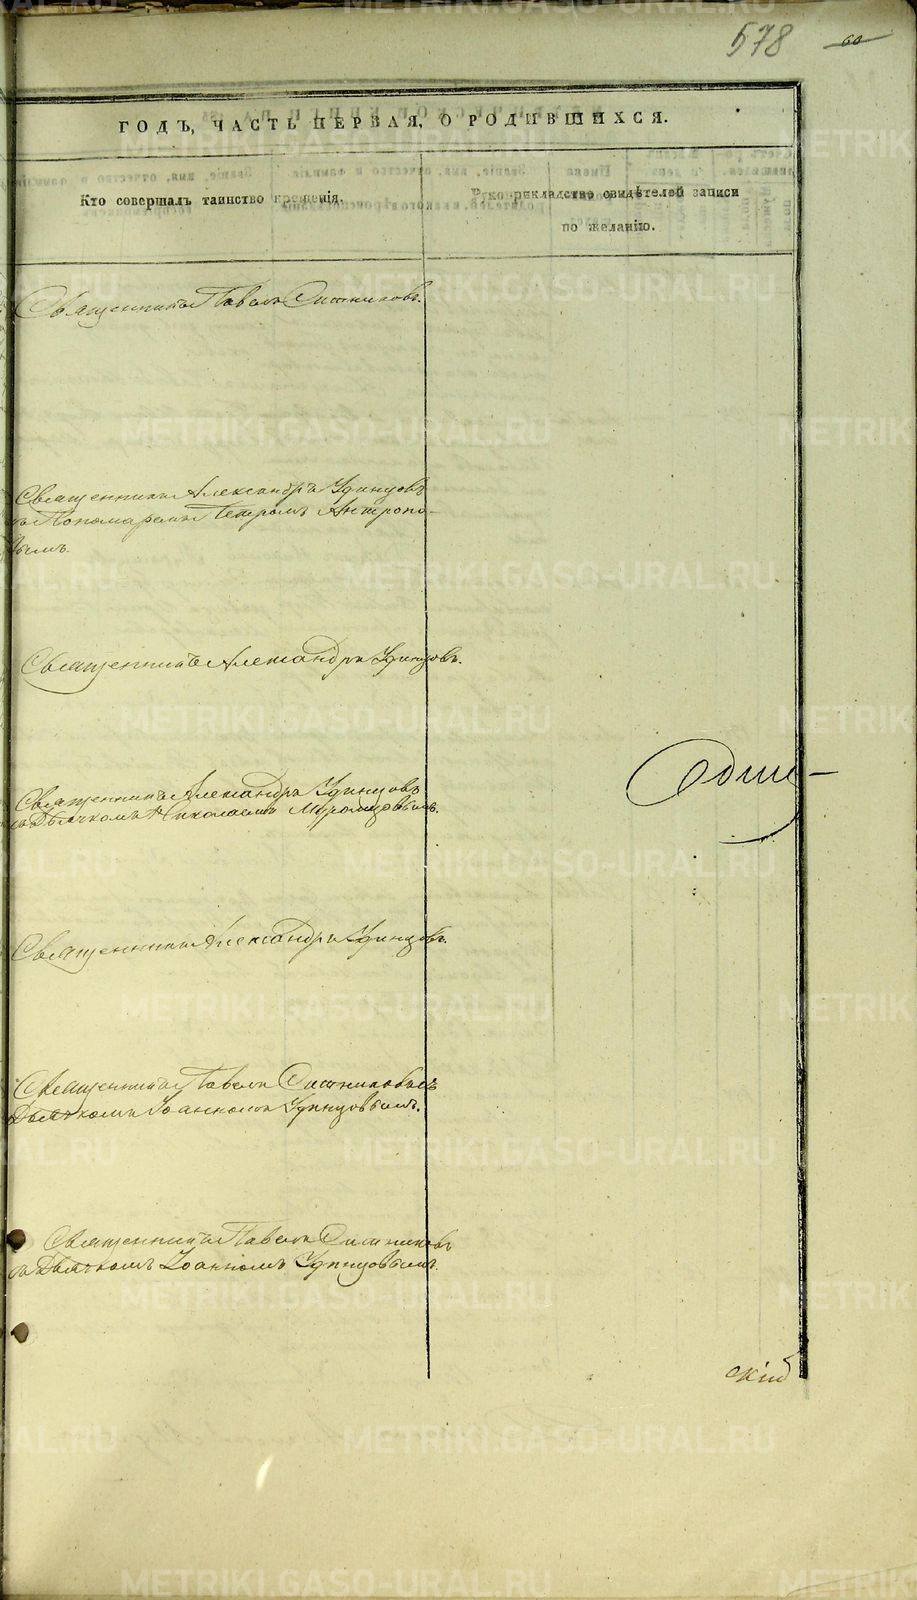 578 60
ГОДЪ, ЧАСТЬ ПЕРВАЯ, О РОДИВШИХСЯ.
Кто совершалъ таинство крещенія.
Рукоприкладство свидѣтелей записи
по желанію.
Священникъ Павелъ Ситниковъ.
Священникъ Александръ Удинцовъ
съ Пономаремъ Петромъ Антропо-
вымъ.
Священникъ Александръ Удинцовъ.
Священникъ Александръ Удинцовъ
съ Дьячкомъ Николаемъ
Священникъ Александръ Удинцовъ.
Священникъ Павелъ Ситниковъ съ
Дьячкомъ Іоанномъ Удинцовымъ.
Священникъ Павелъ Ситниковъ
съ Дьячкомъ Іоанномъ Удинцовымъ.
скій
METRIKI.GASO-URAL.RU